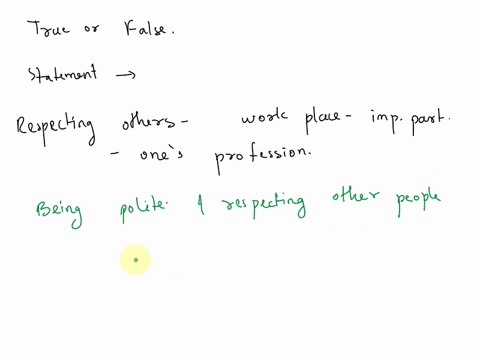 True or False.
Statement →
Respecting others - work place - imp. part.
- one's profession.
Being polite & respecting other people